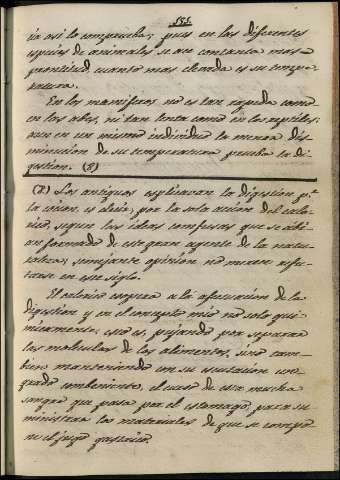 155.
cia asi lo comprueba; pues en las diferentes
especies de animales se ace con tanta mas
prontitud, cuanto mas elevada es su tempe-
ratura.
En los mamiferos no es tan rapida como
en las abes, ni tan lenta como en los reptiles;
aun en un mismo individuo la menor dis-
minucion de su temperatura prueba la di-
gestion. (8)
(8) Los antiguos esplicavan la digestion p.r
la cocion, es decir, por la sola accion del calo-
rico, segun las ideas confusas que se abi-
an formado de este gran agente de la natu-
raleza; semejante opinion no merece refu-
tarse en este siglo.
El calorico coopera a la ejecucion de la
digestion y en el concepto mio no solo qui-
micamente; esto es, pujando por separar
las moleculas de los alimentos, sino tam-
bien manteniendo con su escitacion en
grado combeniente, el curso de esta mucha
sangre que pasa por el estomago, para su-
ministrar los materiales de que se compo-
ne el jugo gastrico.